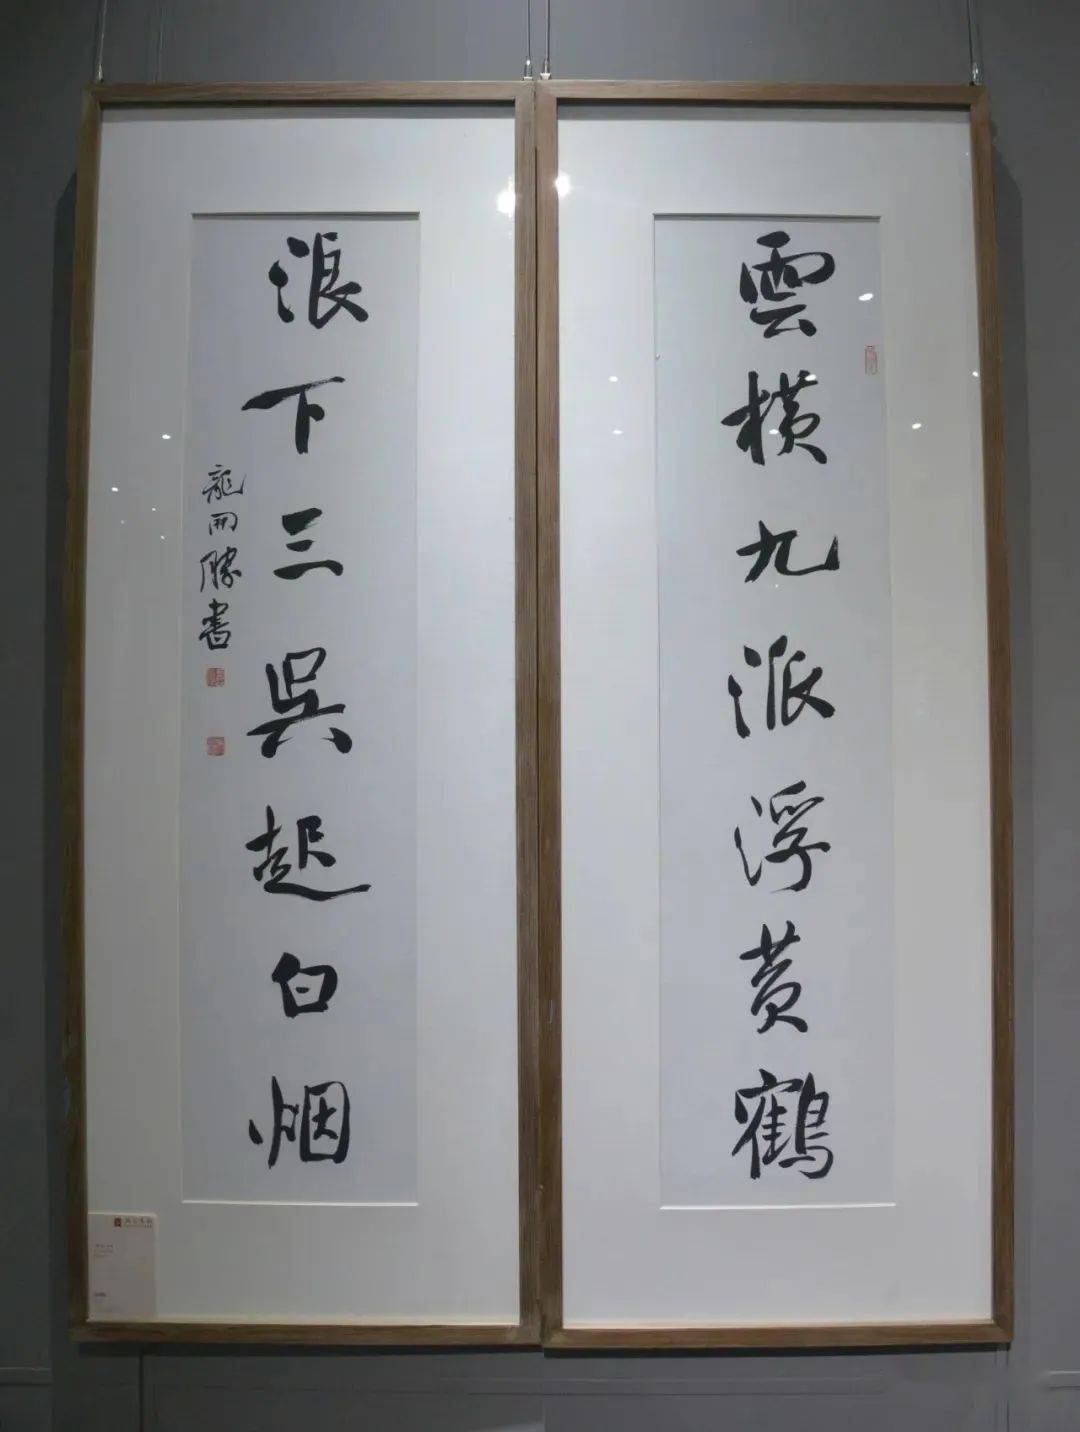 雲橫九派浮黃鶴
浪下三吳起白烟
龍開勝書